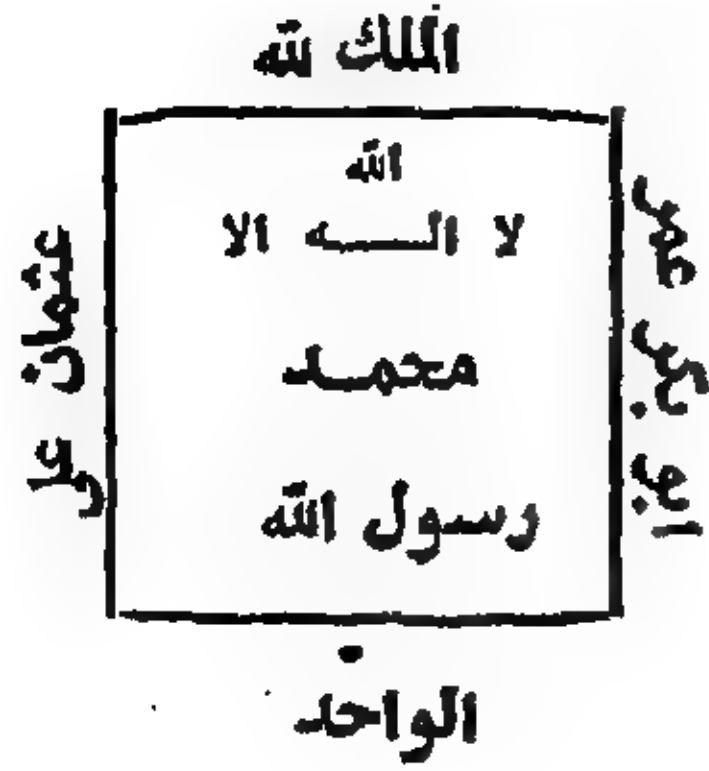 الملك لله
الله
لا الـــه الا
محمـد
رسول الله
ابو بكر عمر
عثمان على
الواحد